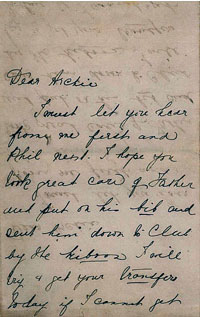 Dear Archie
I must let you hear
from me first and
Phil next. I hope you
took great care of Father
and put on his bib and
sent him down to Club
by the ribbons I will
try & get your Transfers
today if I cannot get